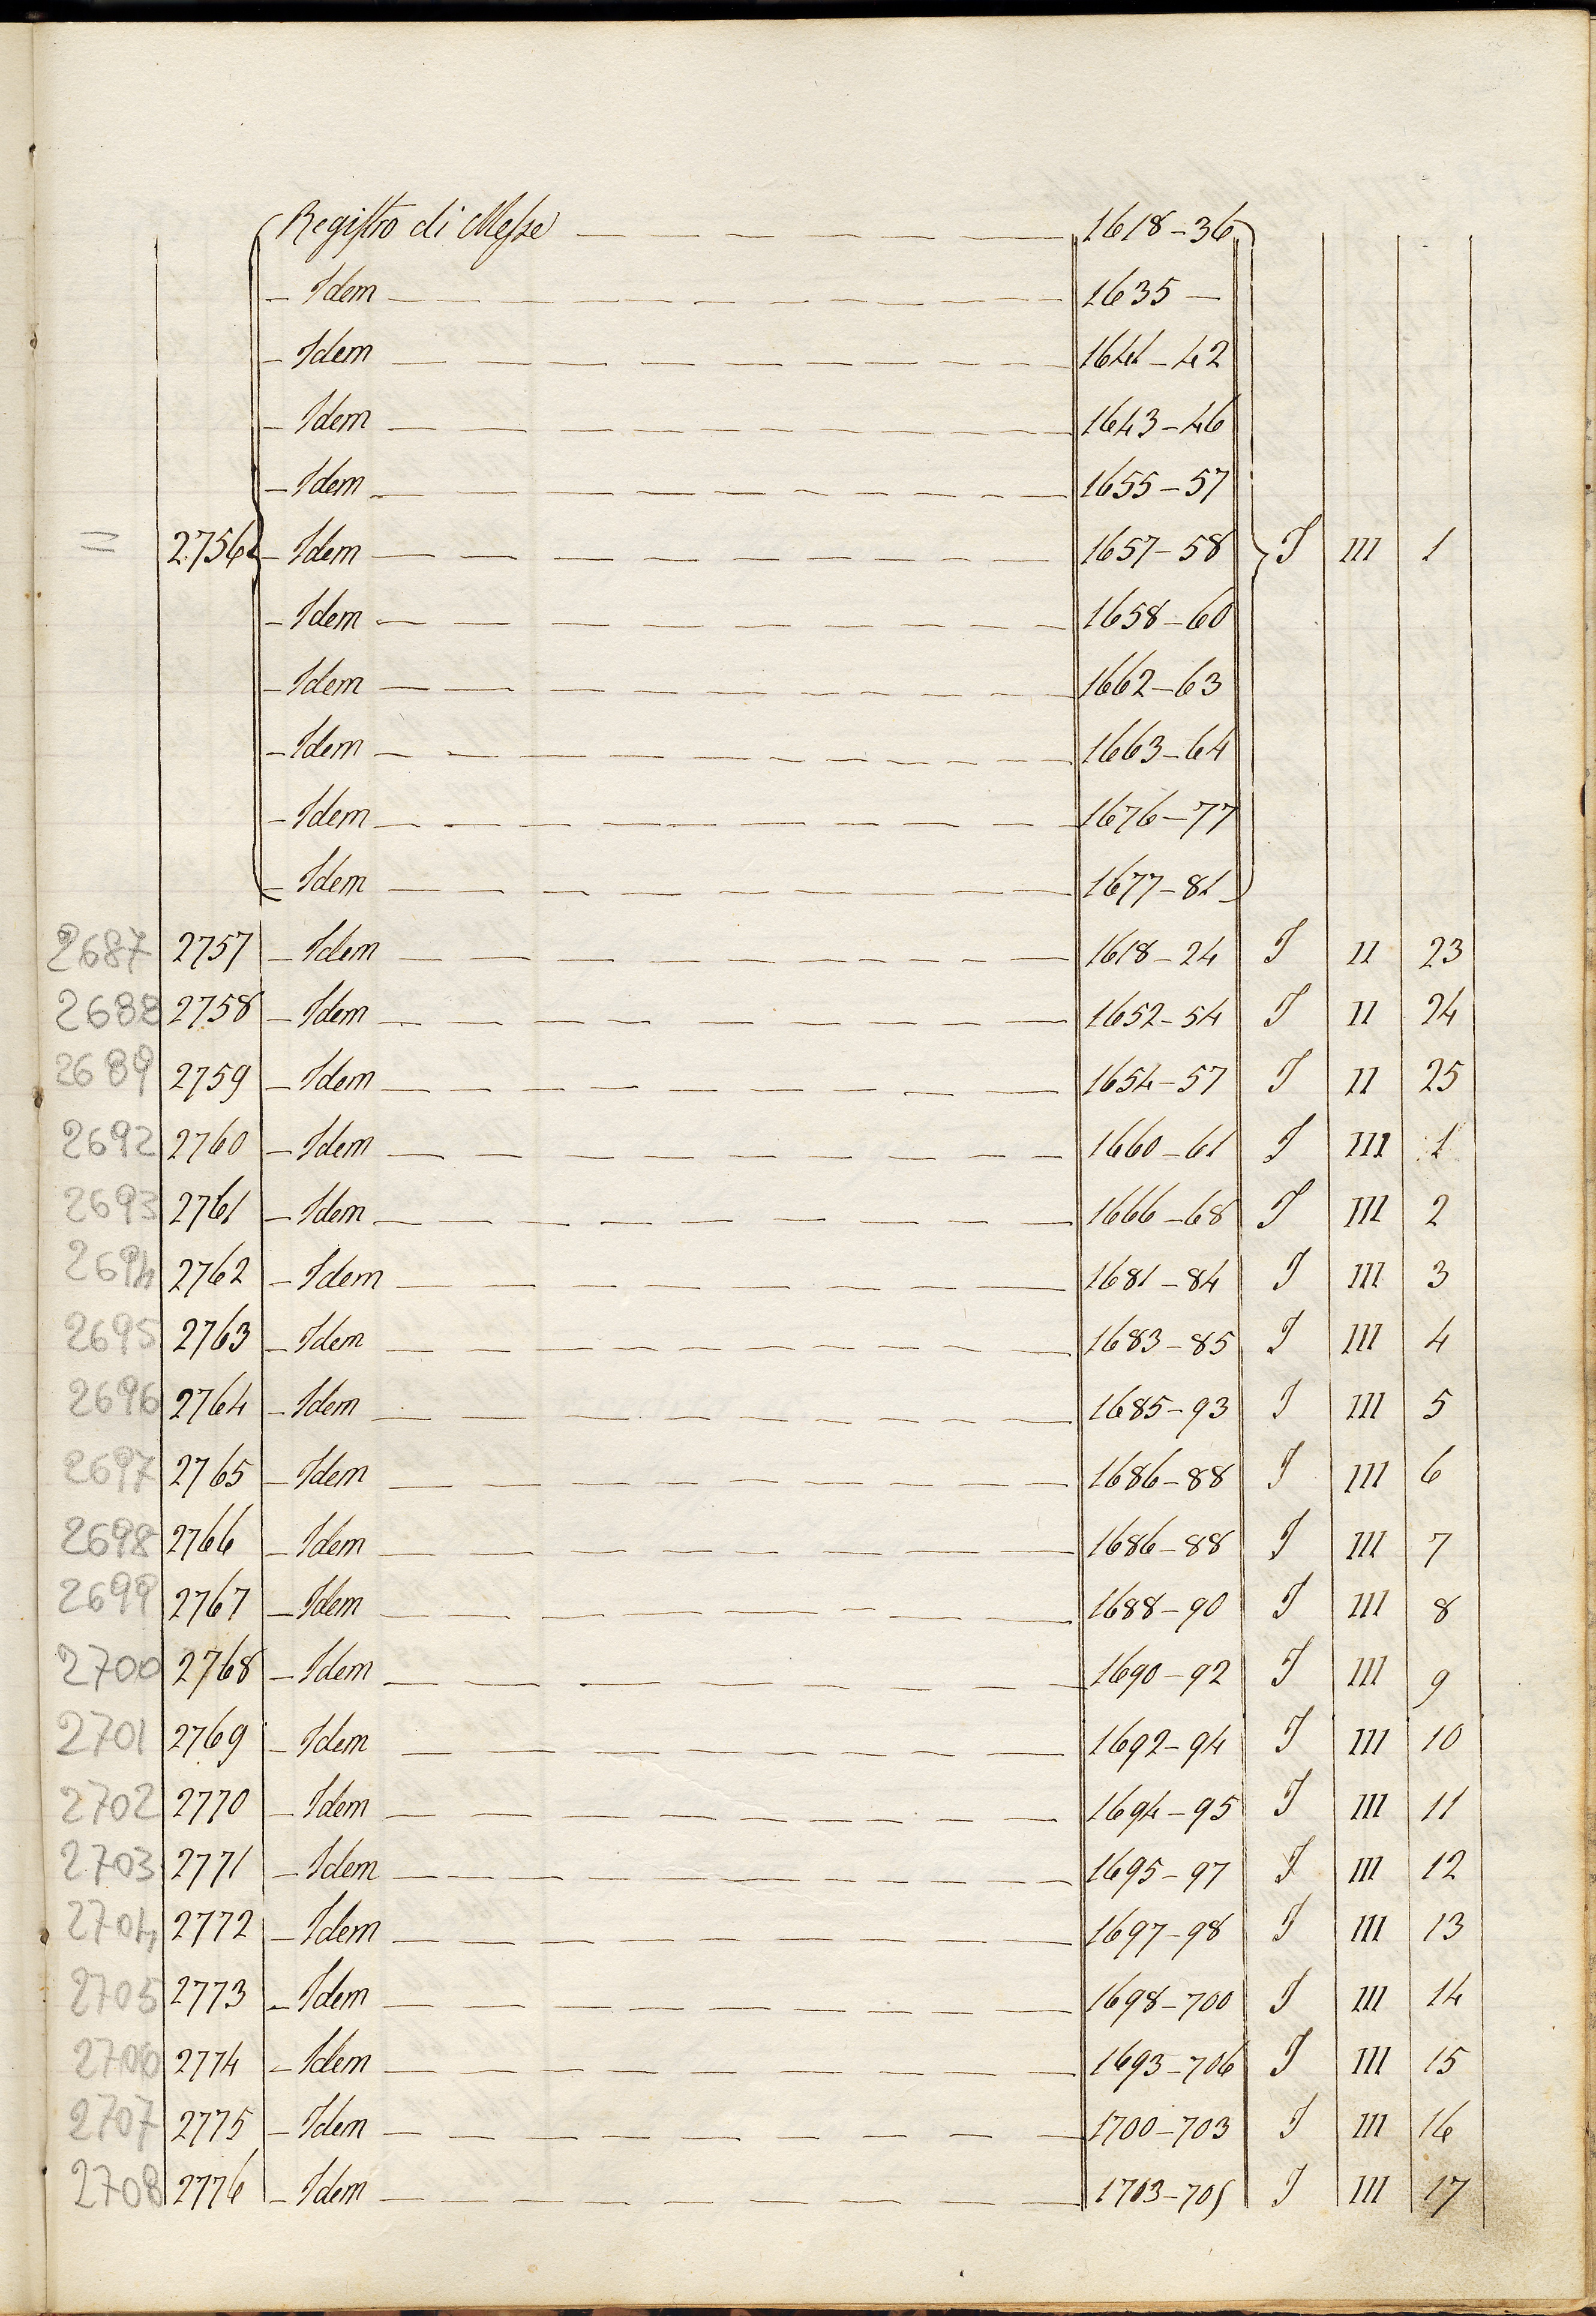 Registro di Messe — 1618-36
— Idem — 1635 —
— Idem — 1641-42
— Idem — 1643-46
— Idem — 1655-57
= 2756 — Idem — 1657-58 I III 1
— Idem — 1658-60
— Idem — 1662-63
— Idem — 1663-64
— Idem — 1676-77
— Idem — 1677-81
2687 2757 — Idem — 1618-24 I II 23
2688 2758 — Idem — 1652-54 I II 24
2689 2759 — Idem — 1654-57 I II 25
2692 2760 — Idem — 1660-61 I III 1
2693 2761 — Idem — 1666-68 I III 2
2694 2762 — Idem — 1681-84 I III 3
2695 2763 — Idem — 1683-85 I III 4
2696 2764 — Idem — 1685-93 I III 5
2697 2765 — Idem — 1686-88 I III 6
2698 2766 — Idem — 1686-88 I III 7
2699 2767 — Idem — 1688-90 I III 8
2700 2768 — Idem — 1690-92 I III 9
2701 2769 — Idem — 1692-94 I III 10
2702 2770 — Idem — 1694-95 I III 11
2703 2771 — Idem — 1695-97 I III 12
2704 2772 — Idem — 1697-98 I III 13
2705 2773 — Idem — 1698-700 I III 14
2706 2774 — Idem — 1693-706 I III 15
2707 2775 — Idem — 1700-703 I III 16
2708 2776 — Idem — 1703-705 I III 17